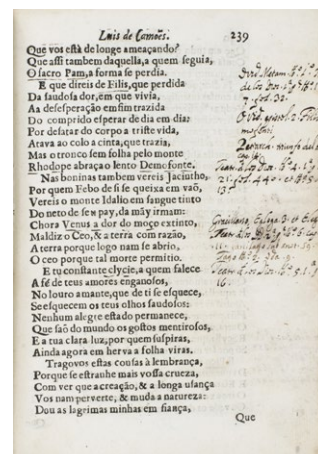 Luis de Camões.
239
Que vos està de longe ameaçando?
Que assi tambem daquella, a quem seguia,
O sacro Pam, a forma se perdia.
E que direis de Filis, que perdida
Da saudosa dor, em que vivia,
Aa desesperação em fim trazida
Do comprido esperar de dia em dia:
Por desatar do corpo a triste vida,
Atava ao colo a cinta, que trazia,
Mas o tronco sem folha pelo monte
Rhodope abraça o lento Demofonte.
Nas boninas tambem vereis Jacintho,
Por quem Febo de si se queixa em vaõ,
Vereis o monte Idalio em sangue tinto
Do neto de seu pay, da mãy irmam:
Chora Venus a dor do moço extinto,
Maldiz o Ceo, & a terra com razão,
A terra porque logo nam se abrio,
O ceo porque tal morte permitio.
E tu constante clycie, a quem falece
A fé de teus amores enganosos,
No louro amante, que de ti se esquece,
Se esquecem os teus olhos saudosos:
Nenhum alegre estado permanece,
Que saõ do mundo os gostos mentirosos,
E a tua clara luz, por quem suspiras,
Ainda agora em herva a folha viras.
Tragovos estas cousas à lembrança,
Porque se estrauhe mais vossa crueza,
Com ver que a creação, & a longa usança
Vos nam perverte, & muda a natureza:
Dou as lagrimas minhas em fiança,
Que